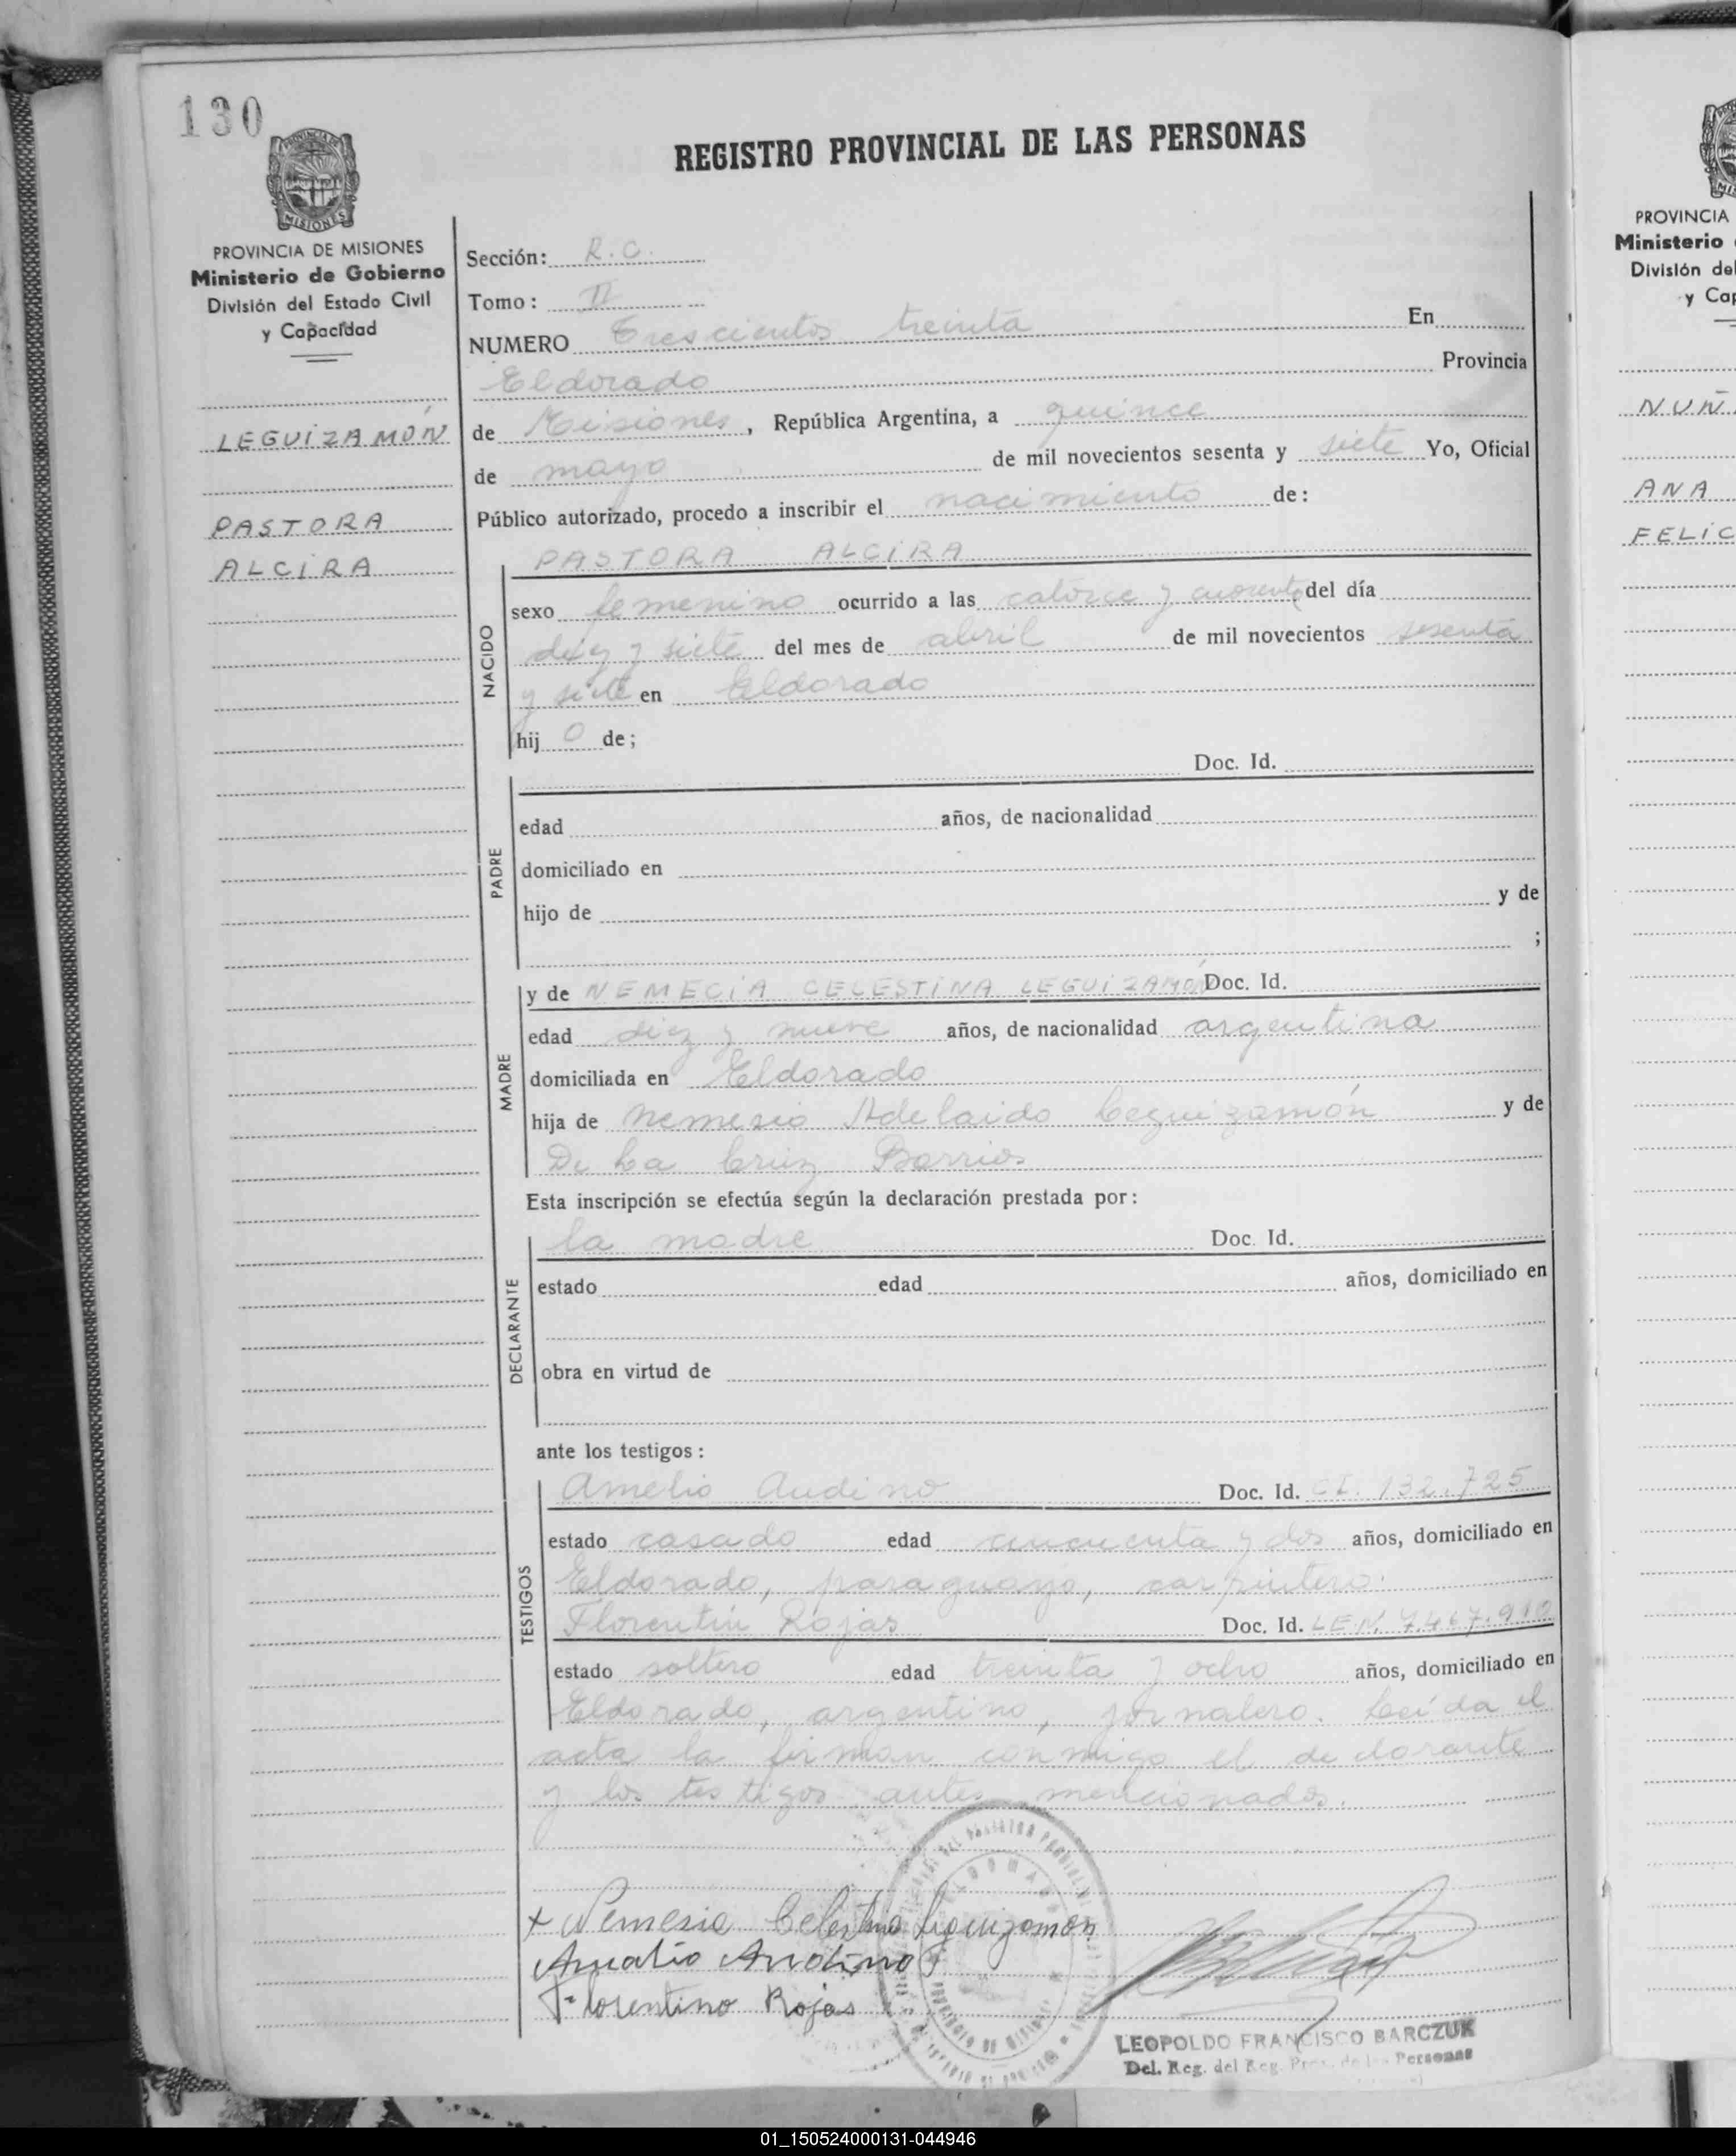 130
REGISTRO PROVINCIAL DE LAS PERSONAS
MISIONES
PROVINCIA DE MISIONES
Ministerio de Gobierno
División del Estado Civil
y Capacidad
LEGUIZAMÓN
PASTORA
ALCIRA
Sección: R.C.
Tomo: II
NUMERO Trescientos treinta En
Eldorado Provincia
de Misiones, República Argentina, a quince
de mayo de mil novecientos sesenta y siete Yo, Oficial
Público autorizado, procedo a inscribir el nacimiento de:
PASTORA ALCIRA
NACIDO
sexo femenino ocurrido a las catorce y cuarenta del día
diez y siete del mes de abril de mil novecientos sesenta
y siete en Eldorado
hij o de;
PADRE
Doc. Id.
edad años, de nacionalidad
domiciliado en
hijo de y de
;
MADRE
y de NEMECIA CELESTINA LEGUIZAMÓN Doc. Id.
edad diez y nueve años, de nacionalidad argentina
domiciliada en Eldorado
hija de Nemesio Adelaido Leguizamón y de
De La Cruz Barrios
Esta inscripción se efectúa según la declaración prestada por:
DECLARANTE
la madre Doc. Id.
estado edad años, domiciliado en
obra en virtud de
ante los testigos:
TESTIGOS
Amelio Audino Doc. Id. CI. 132.725
estado casado edad cincuenta y dos años, domiciliado en
Eldorado, paraguayo, carpintero.
Florentín Rojas Doc. Id. LEN. 7.467.910
estado soltero edad treinta y ocho años, domiciliado en
Eldorado, argentino, jornalero. Leída el
acta la firman conmigo el declarante
y los testigos antes mencionados.
+ Nemesia Celestina Leguizamón
Florentino Rojas
LEOPOLDO FRANCISCO BARCZUK
Del. Reg. del Reg. Prov. de las Personas
PROVINCIA
Ministerio
División del
y Cap
NUÑ
ANA
FELIC
01_150524000131-044946